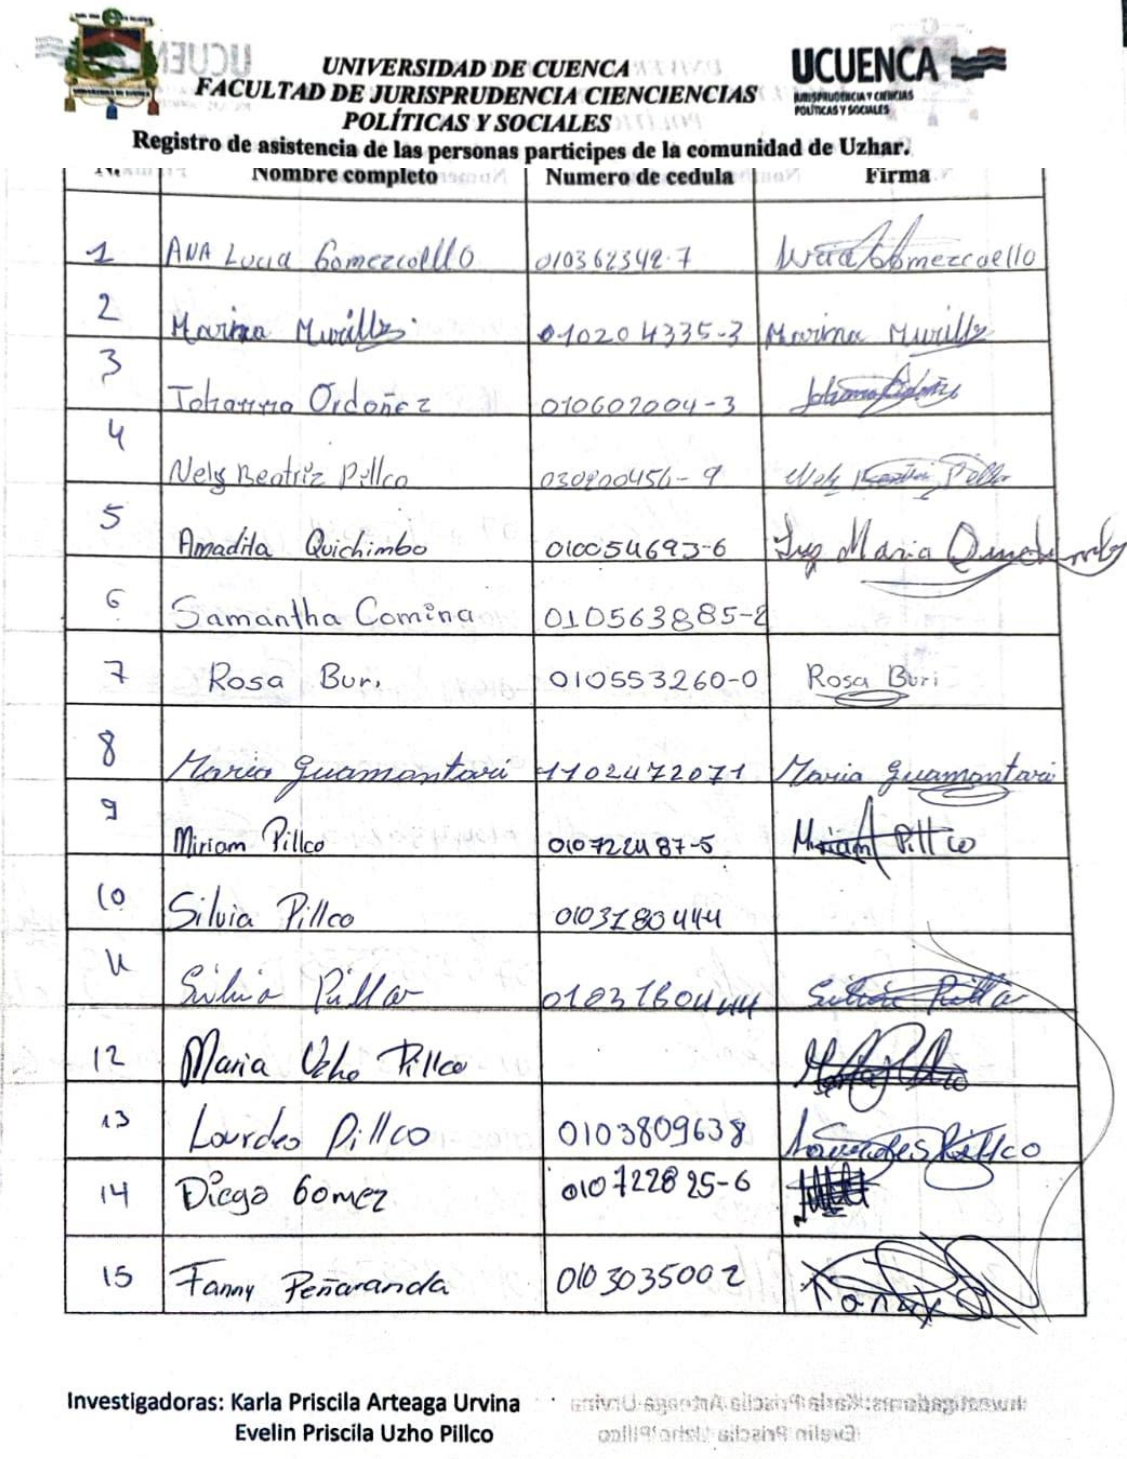 UNIVERSIDAD DE CUENCA
FACULTAD DE JURISPRUDENCIA CIENCIENCIAS
POLÍTICAS Y SOCIALES
UCUENCA
JURISPRUDENCIA Y CIENCIAS
POLÍTICAS Y SOCIALES
Registro de asistencia de las personas participes de la comunidad de Uzhar.
Nombre completo Numero de cedula Firma
1 ANA Lucia Gomezcoello 010362342-7 Lucia Gomezcoello
2 Marina Murillo 010204335-3 Marina Murillo
3 Johanna Ordoñez 010602004-3 Johanna Ordoñez
4 Nely Beatriz Pillco -9 Nely Beatriz Pillco
5 Amadita Quichimbo 010054693-6 Luz Maria Quichimbo
6 Samantha Comina 010563885-2
7 Rosa Buri 010553260-0 Rosa Buri
8 Maria Guamantari 1102472071 Maria Guamantari
9 Miriam Pillco Miriam Pillco
10 Silvia Pillco 0103180444
11 Silvia Pillco 0103180444 Silvia Pillco
12 Maria Uzho Pillco
13 Lourdes Pillco 0103809638 Lourdes Pillco
14 Diego Gomez 010722825-6
15 Fanny Peñaranda 0103035002 Fanny
Investigadoras: Karla Priscila Arteaga Urvina
Evelin Priscila Uzho Pillco